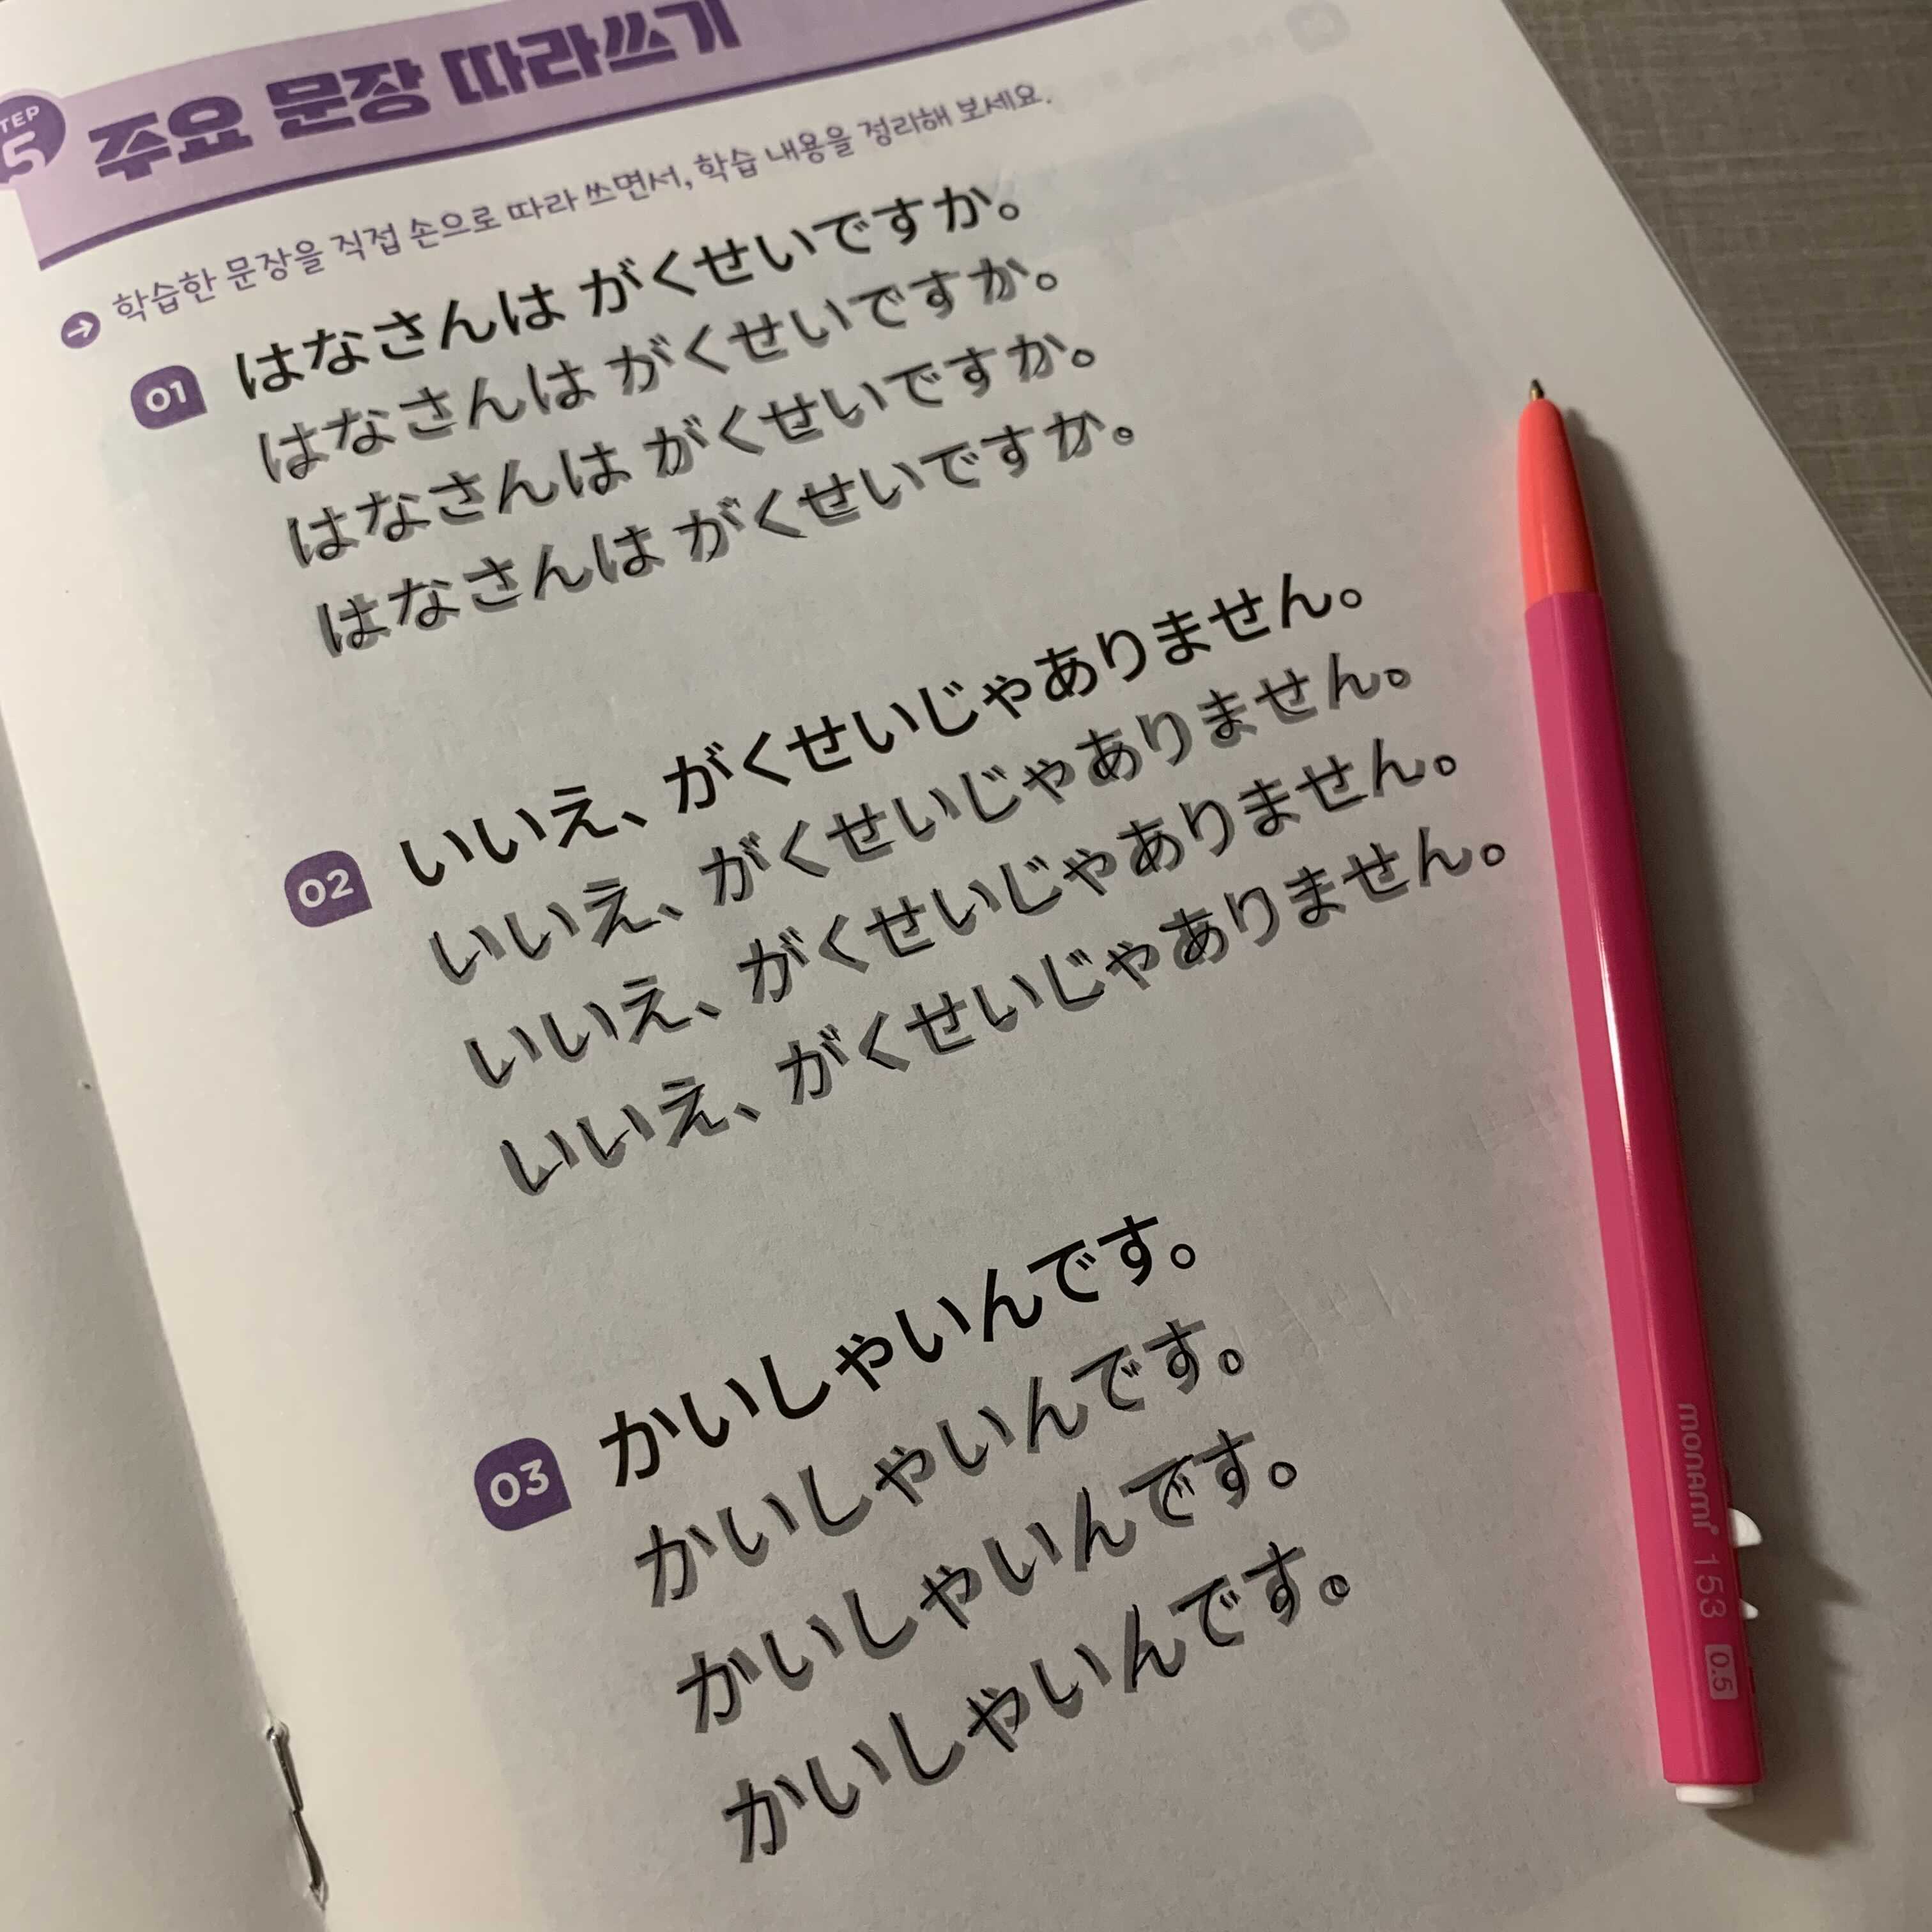 STEP 5 주요 문장 따라쓰기
학습한 문장을 직접 손으로 따라 쓰면서, 학습 내용을 정리해 보세요.
01 はなさんは がくせいですか。
はなさんは がくせいですか。
はなさんは がくせいですか。
はなさんは がくせいですか。
02 いいえ、がくせいじゃありません。
いいえ、がくせいじゃありません。
いいえ、がくせいじゃありません。
いいえ、がくせいじゃありません。
03 かいしゃいんです。
かいしゃいんです。
かいしゃいんです。
かいしゃいんです。
monami 153 0.5